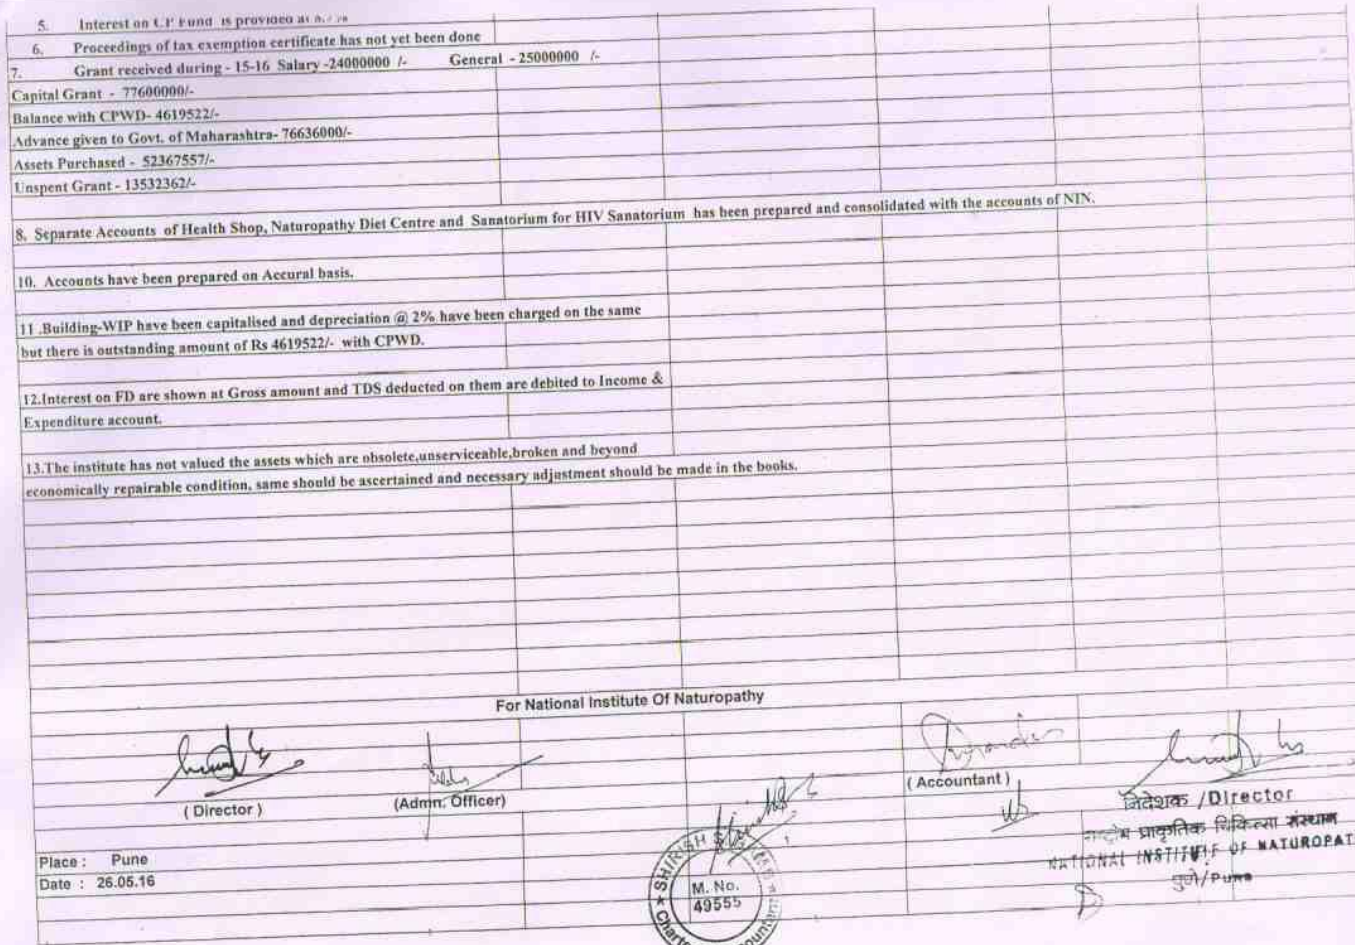 5. Interest on C.P Fund is provided at
6. Proceedings of tax exemption certificate has not yet been done
7. Grant received during - 15-16 Salary -24000000 /- General - 25000000 /-
Capital Grant - 77600000/-
Balance with CPWD- 4619522/-
Advance given to Govt. of Maharashtra- 76636000/-
Assets Purchased - 52367557/-
Unspent Grant - 13532362/-
8. Separate Accounts of Health Shop, Naturopathy Diet Centre and Sanatorium for HIV Sanatorium has been prepared and consolidated with the accounts of NIN.
10. Accounts have been prepared on Accural basis.
11 .Building-WIP have been capitalised and depreciation @ 2% have been charged on the same
but there is outstanding amount of Rs 4619522/- with CPWD.
12.Interest on FD are shown at Gross amount and TDS deducted on them are debited to Income &
Expenditure account.
13.The institute has not valued the assets which are obsolete,unserviceable,broken and beyond
economically repairable condition, same should be ascertained and necessary adjustment should be made in the books.
For National Institute Of Naturopathy
( Director )
(Admn. Officer)
( Accountant )
निदेशक /Director
प्राकृतिक चिकित्सा संस्थान
NATIONAL INSTITUTE OF NATUROPAT
पुणे/Pune
Place : Pune
Date : 26.05.16
SHIRISH
M. No.
49555